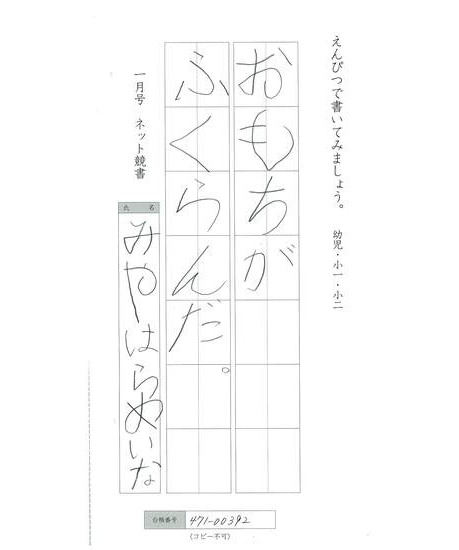 えんぴつで書いてみましょう。 幼児・小一・小二
おもちが
ふくらんだ。
一月号 ネット競書
氏名
みやはらめいな
台帳番号 471-00392
(コピー不可)